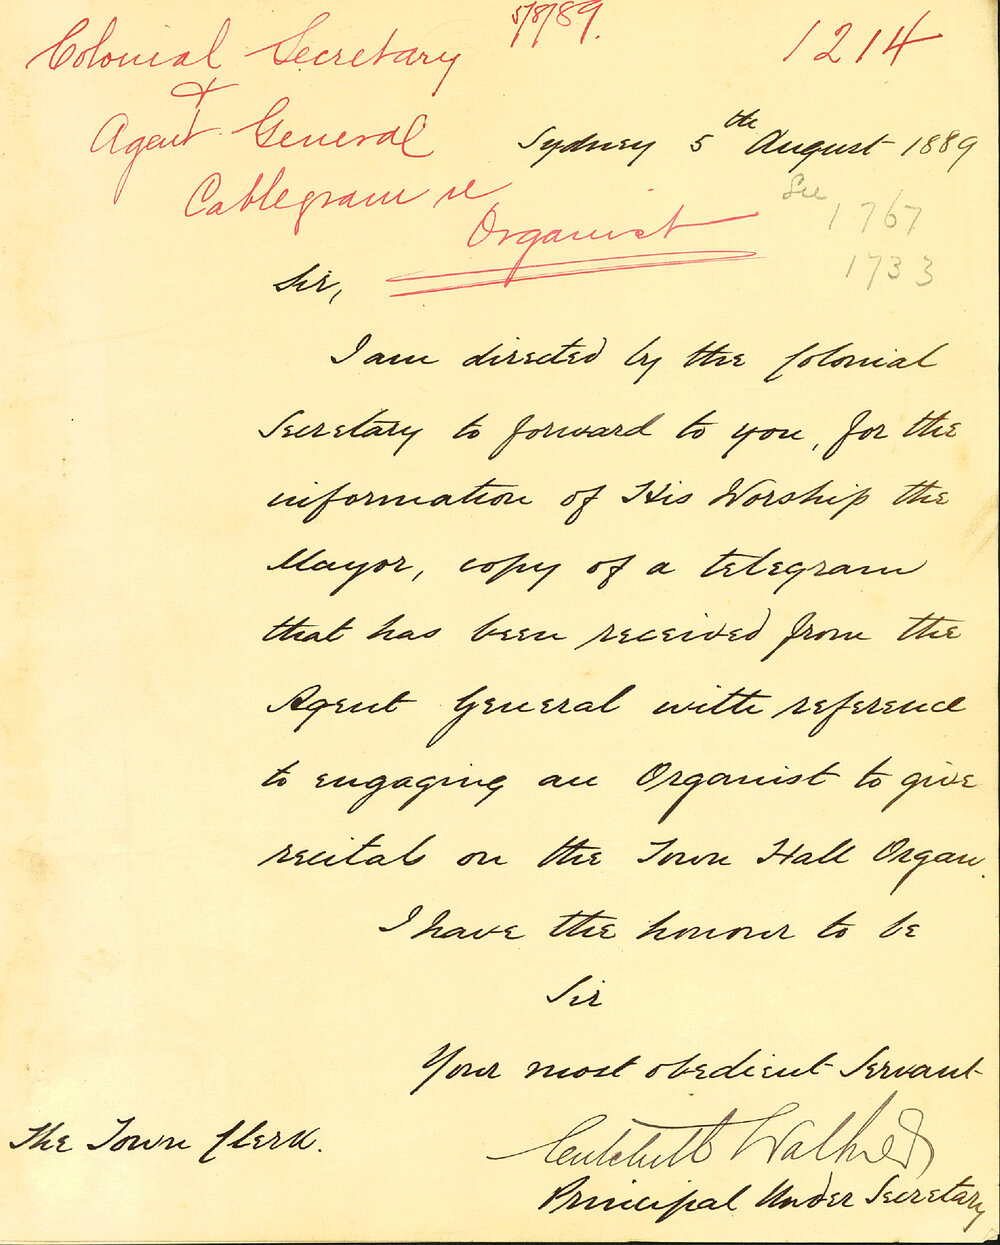 5/8/89.
1214
Colonial Secretary
&
Agent General
Cablegram re
Organist
Sydney 5th August 1889
See
1767
1733
Sir,
I am directed by the Colonial
Secretary to forward to you, for the
information of His Worship the
Mayor, copy of a telegram
that has been received from the
Agent General with reference
to engaging an Organist to give
recitals on the Town Hall Organ.
I have the honour to be
Sir
Your most obedient Servant
Critchett Walker
Principal Under Secretary
The Town Clerk.